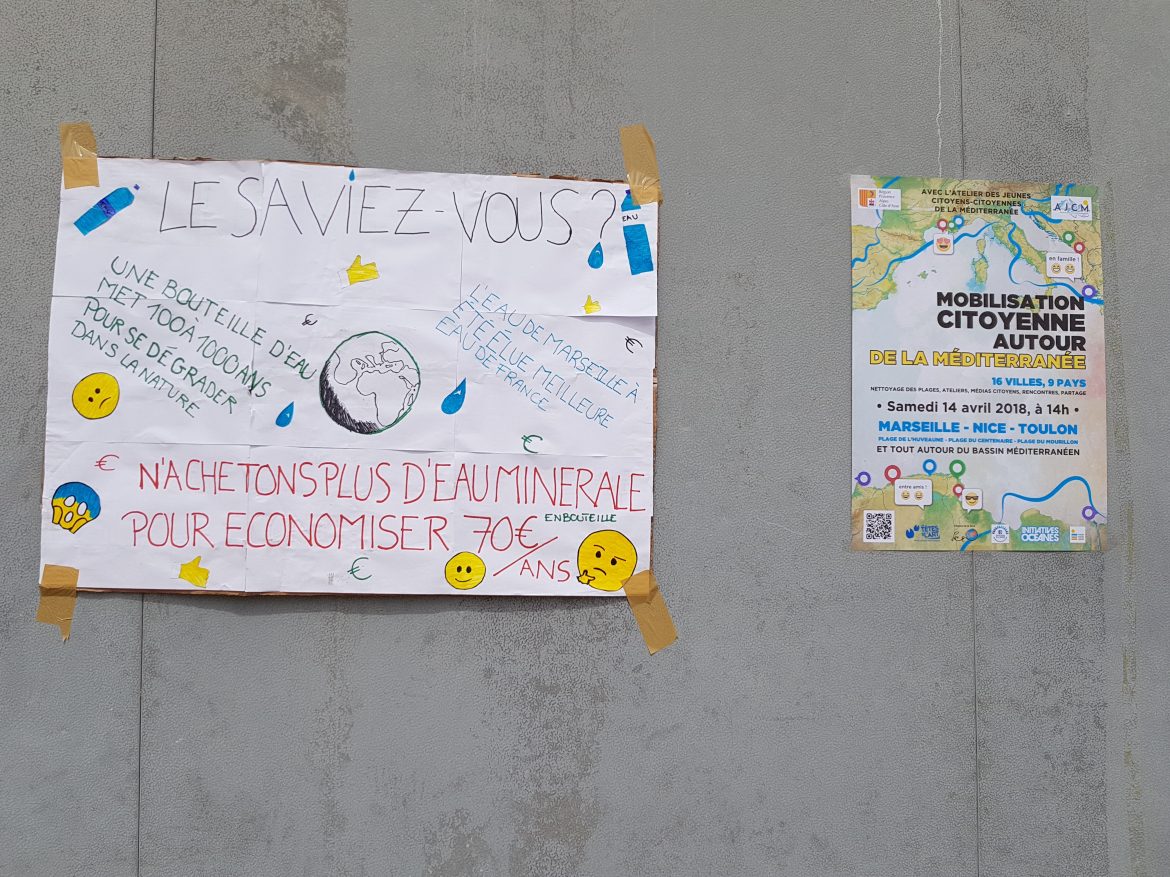 LE SAVIEZ-VOUS ?
EAU
UNE BOUTEILLE D'EAU
MET 100 A 1000 ANS
POUR SE DÉGRADER
DANS LA NATURE
L'EAU DE MARSEILLE À
ÉTÉ ÉLUE MEILLEURE
EAU DE FRANCE
€
€
€
€
N'ACHETONS PLUS D'EAU MINERALE
EN BOUTEILLE
POUR ECONOMISER 70€/ANS
€
AVEC L'ATELIER DES JEUNES
CITOYENS-CITOYENNES
DE LA MÉDITERRANÉE
A.J.C.M.
en famille !
MOBILISATION
CITOYENNE
AUTOUR
DE LA MÉDITERRANÉE
16 VILLES, 9 PAYS
NETTOYAGE DES PLAGES, ATELIERS, MÉDIAS CITOYENS, RENCONTRES, PARTAGE
• Samedi 14 avril 2018, à 14h •
MARSEILLE - NICE - TOULON
PLAGE DE L'HUVEAUNE - PLAGE DU CENTENAIRE - PLAGE DU MOURILLON
ET TOUT AUTOUR DU BASSIN MÉDITERRANÉEN
entre amis !
INITIATIVES
OCEANES